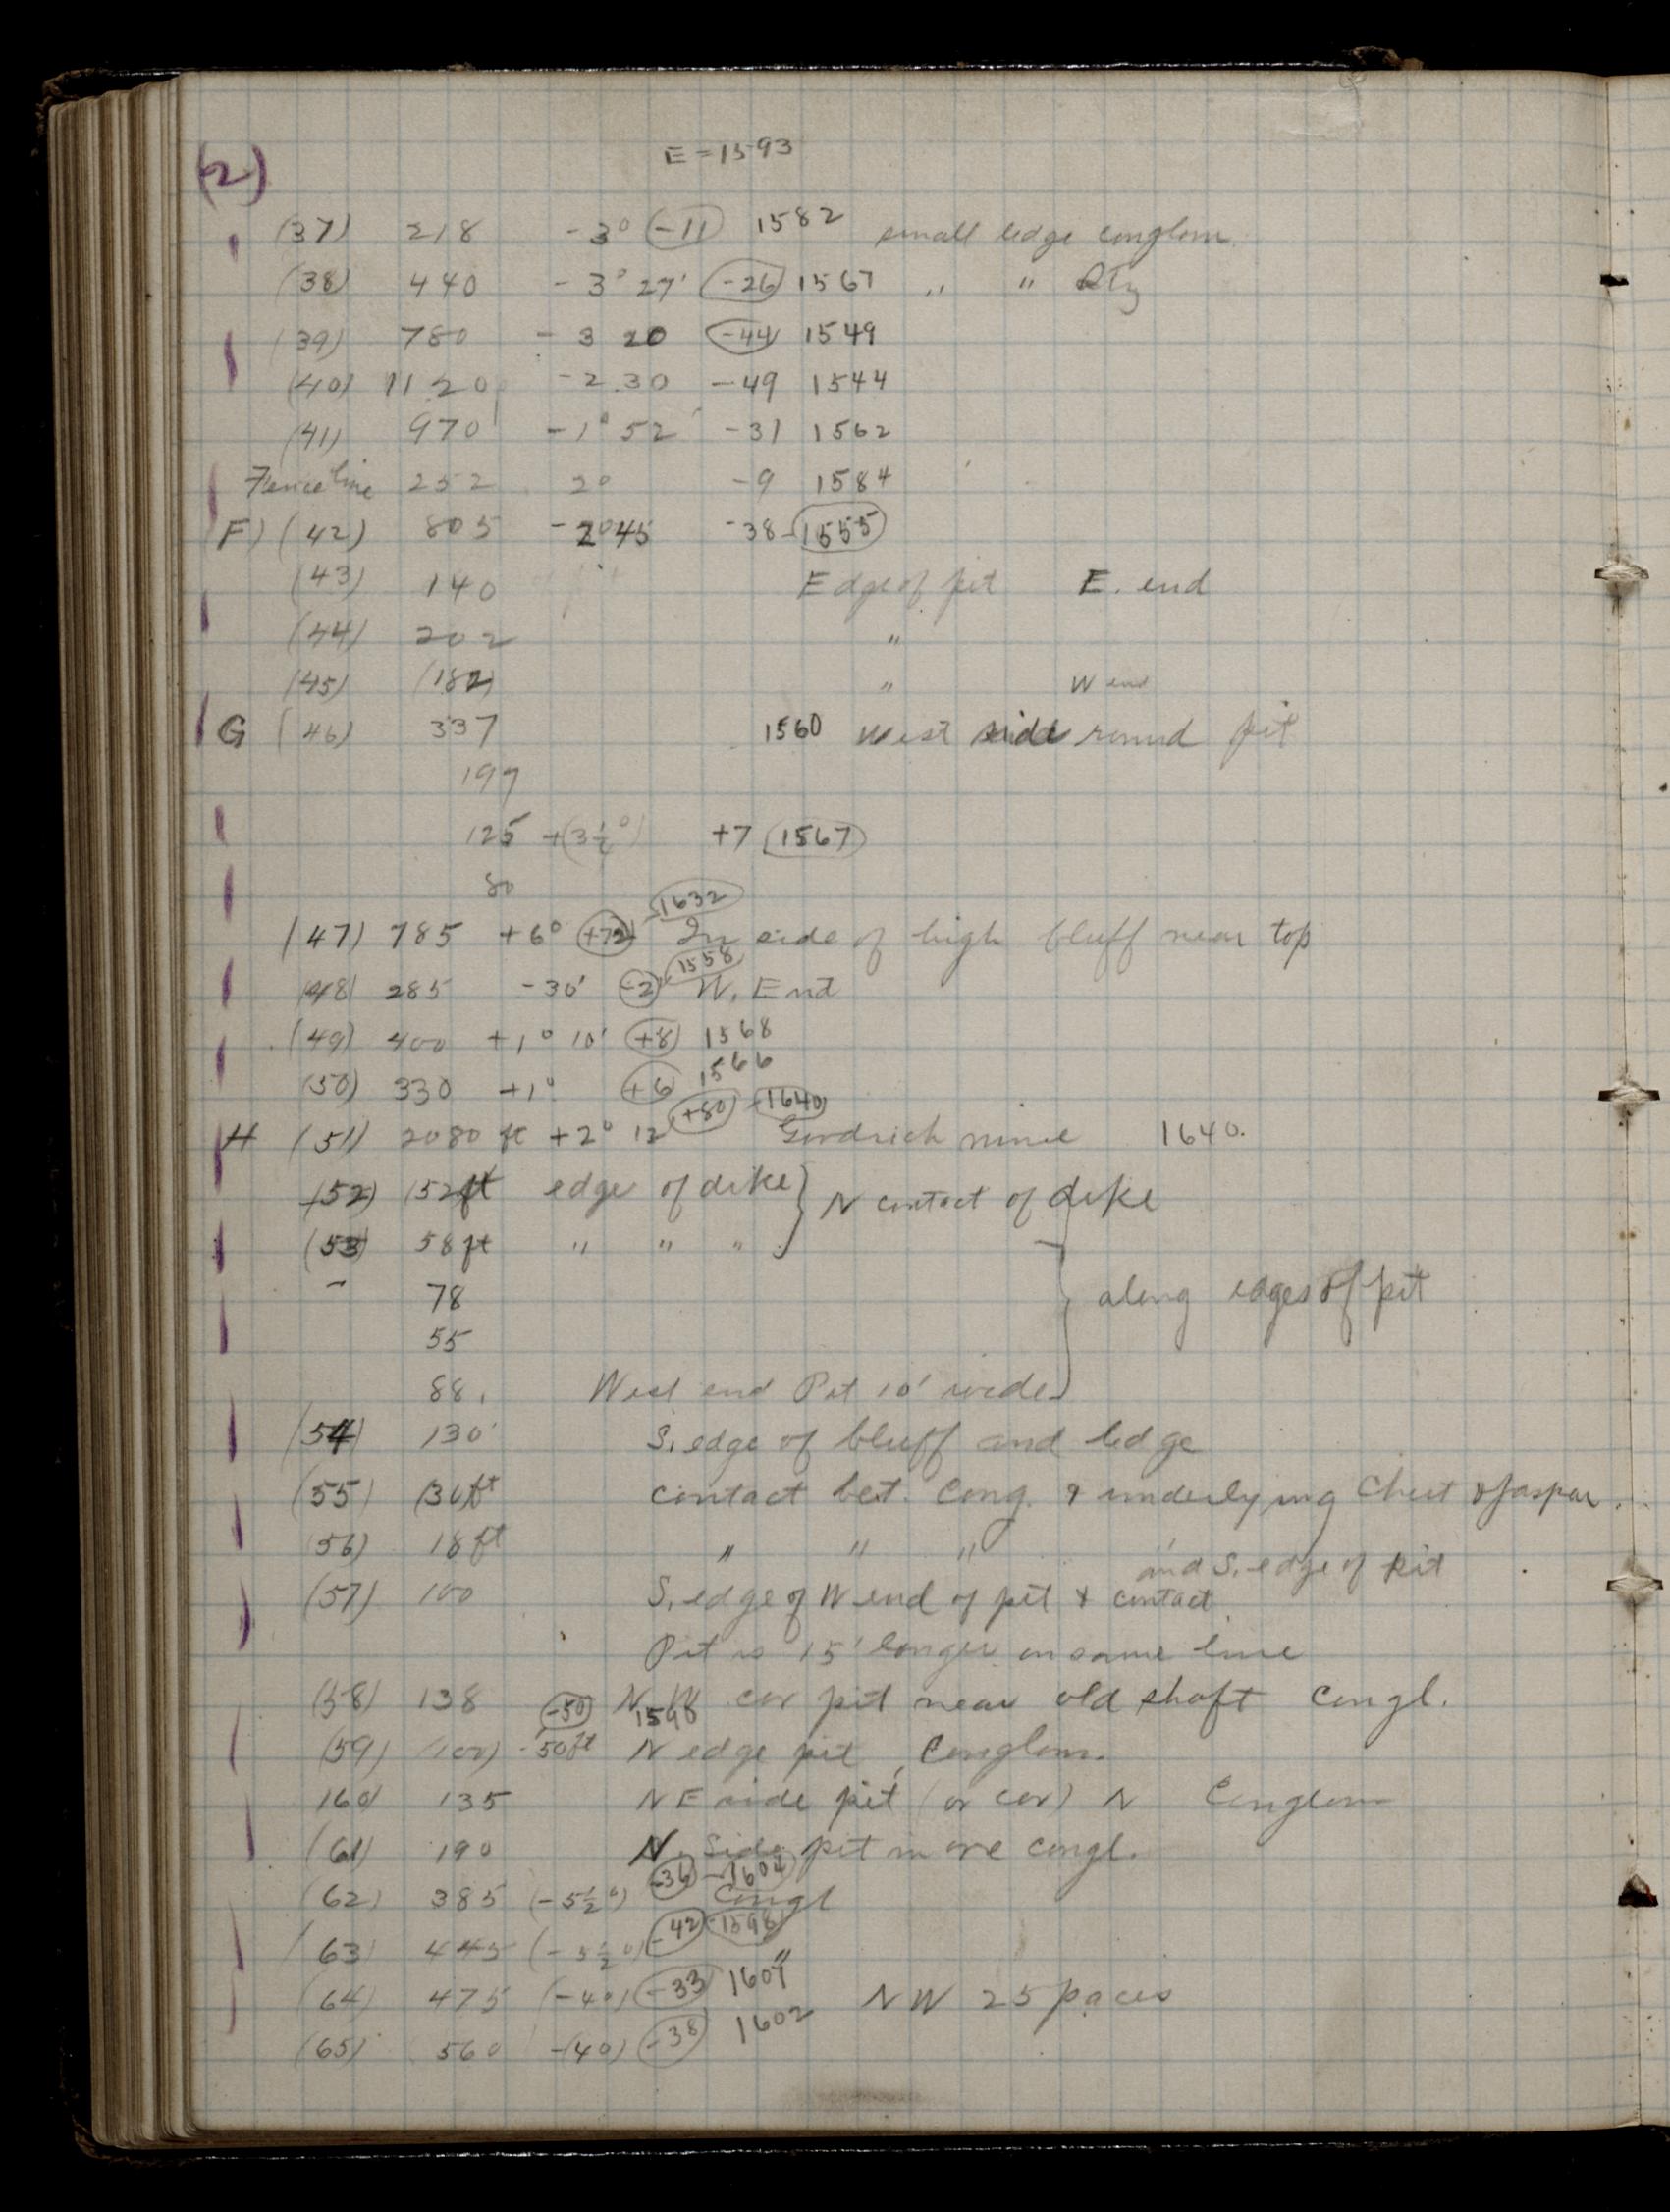 (2)
E = 1593
(37) 218 - 3° (-11) 1582 small ledge conglom.
(38) 440 - 3° 27' (-26) 1567 " " Qtz
(39) 780 - 3 20 (-44) 1549
(40) 1120 - 2.30 - 49 1544
(41) 970 - 1° 52' - 31 1562
Fence line 252 2° - 9 1584
F) (42) 805 - 2°45 - 38 - (1555)
(43) 140 Edge of pit E. end
(44) 202 "
(45) (182) " W end
G (46) 337 1560 West side round pit
197
125 + (3½°) +7 (1567)
80
(1632)
(47) 785 + 6° (+72) In side of high bluff near top
(1558)
(48) 285 - 30' (-2) W. End
(49) 400 + 1° 10' (+8) 1568
(50) 330 + 1° (+6) 1566
H (51) 2080 ft + 2° 12' (+80) - (1640) Goodrich mine 1640.
(52) 152 ft edge of dike } N contact of dike
(53) 58 ft " " "
- 78
55 } along edges of pit
88. West end Pit 10' wide
(54) 130' S. edge of bluff and ledge
(55) (30)ft contact bet. Cong. & underlying Chert & Jaspar.
(56) 18 ft " " " "
and S. edge of pit
(57) 100 S. edge of W end of pit & contact
Pit is 15' longer on same line
(58) 138 N. W. cor pit near old shaft Congl.
(-50) 1598
(59) (100) - 50 ft N edge pit, Conglom.
(60) 135 N E side pit (or cor) N Conglom
(61) 190 N. Side pit in ore congl.
(-36) - 1604
(62) 385 (- 5½°) Congl
(63) 445 (- 5½°) (-42) (-1598) "
(64) 475 (- 4°) (-33) 1607 NW 25 paces
(65) 560 - (4°) (-38) 1602